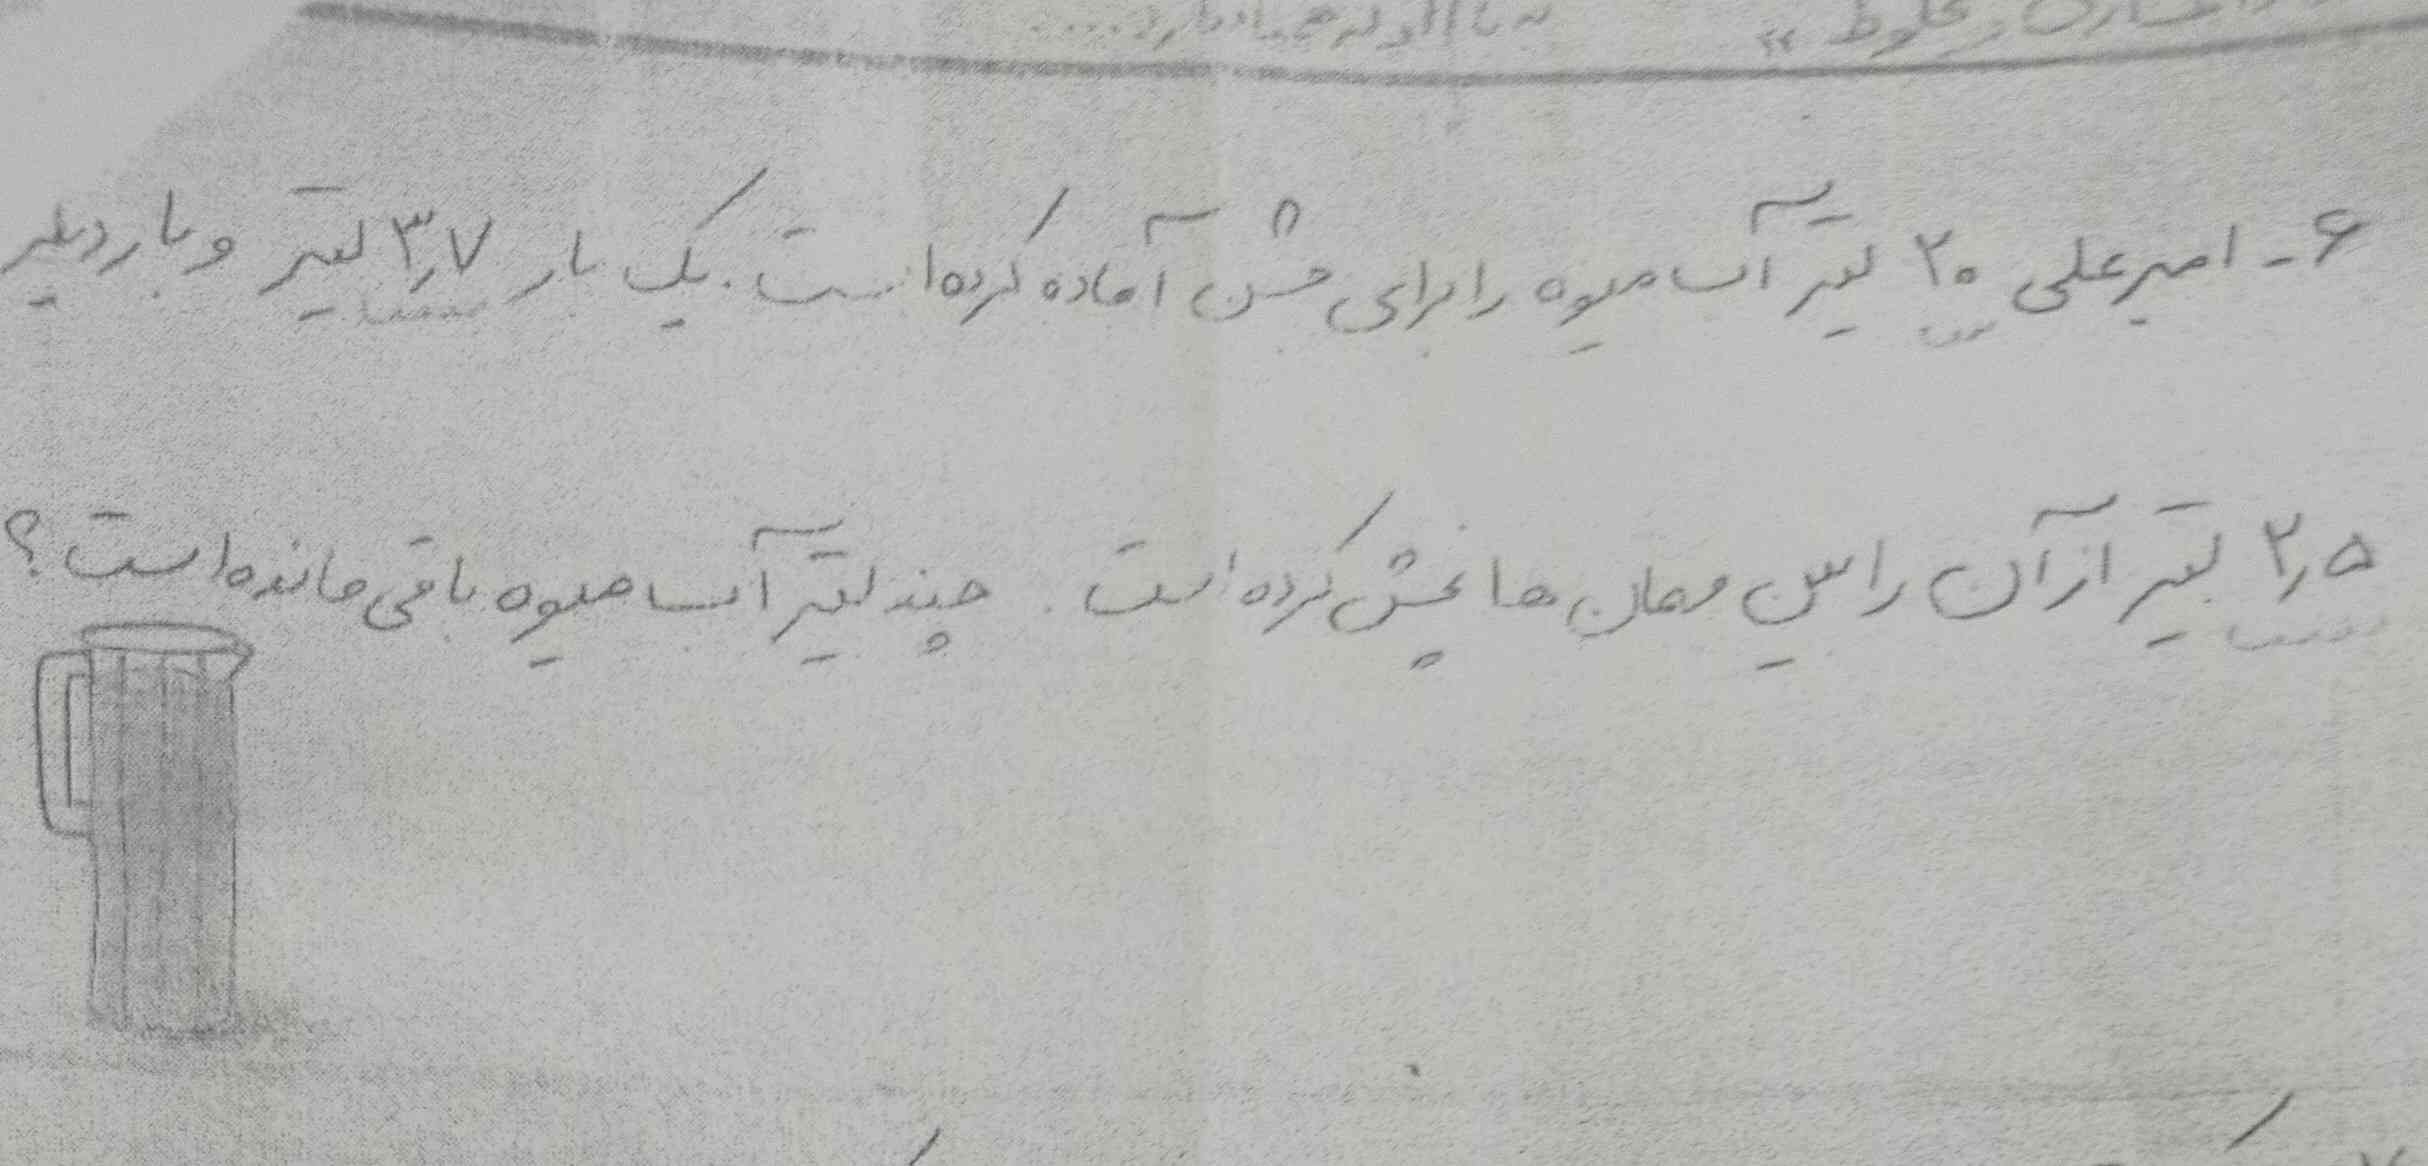 ۶- امیرعلی ۲۰ لیتر آب میوه را برای جشن آماده کرده است. یک بار ۳٫۷ لیتر و بار دیگر
۲٫۵ لیتر از آن را بین مهمان ها پخش کرده است. چند لیتر آب میوه باقی مانده است؟